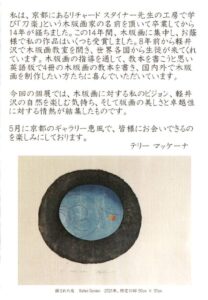 私は、京都にあるリチャード スタイナー先生の工房で学
び「刀楽」という木版画家の名前を頂いて卒業してから
14年が経ちました。この14年間、木版画に集中し、お蔭
様で私の作品はいくつも受賞しました。8年前から軽井
沢で木版画教室を開き、世界各国から生徒が来てくれ
ています。木版画の指導を通して、教本を書こうと思い
英語版で4冊の木版画の教本を書き、国内外で木版
画を制作したい方たちに喜んでいただいています。
今回の個展では、木版画に対する私のビジョン、軽井
沢の自然を楽しむ気持ち、そして版画の美しさと卓越性
に対する情熱が結集したものです。
5月に京都のギャラリー恵風で、皆様にお会いできるの
を楽しみにしております。
テリー マッケーナ